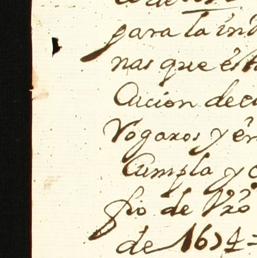 para la ind
nas que esta
Cucion de e
Vogaros y en
Cumpla y c
fio de Pro
de 1674=